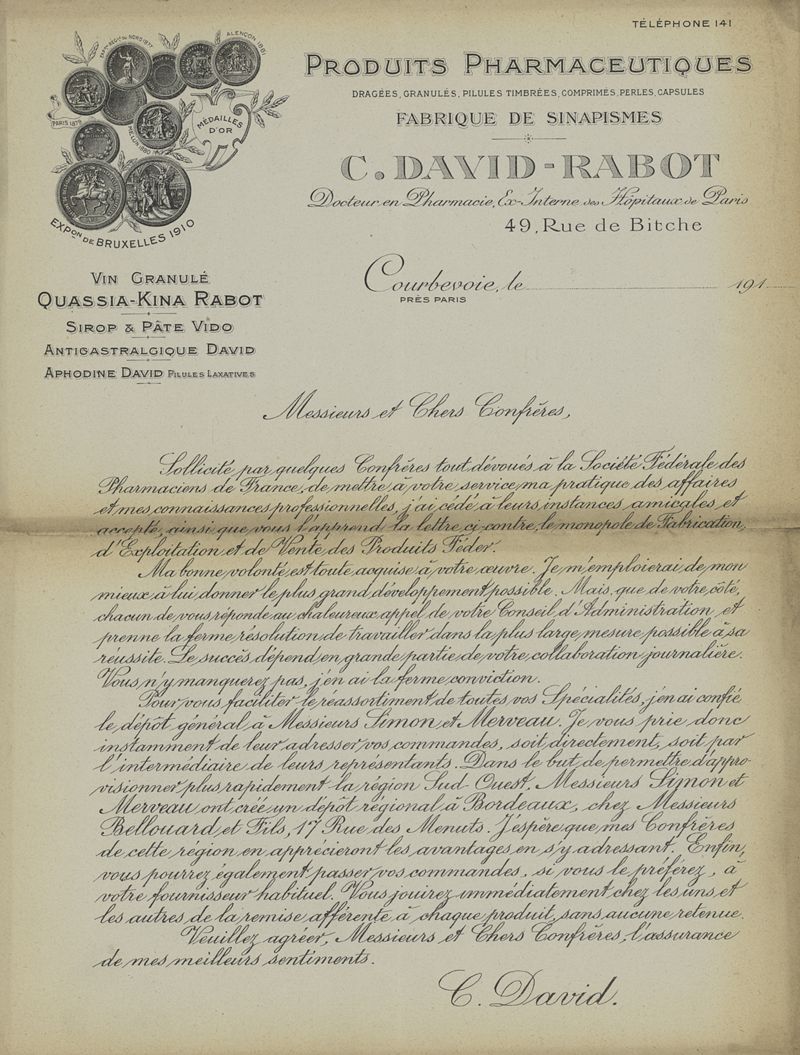 TÉLÉPHONE 141
PRODUITS PHARMACEUTIQUES
DRAGÉES, GRANULÉS, PILULES TIMBRÉES, COMPRIMÉS, PERLES, CAPSULES
FABRIQUE DE SINAPISMES
C. DAVID-RABOT
Docteur en Pharmacie, Ex-Interne des Hôpitaux de Paris
49, Rue de Bitche
Courbevoie, le 191
PRÈS PARIS
ALENÇON 1881
PARIS 1878
MELUN 1880
MÉDAILLES
D'OR
EXPon DE BRUXELLES 1910
VIN GRANULÉ
QUASSIA-KINA RABOT
SIROP & PÂTE VIDO
ANTIGASTRALGIQUE DAVID
APHODINE DAVID PILULES LAXATIVES
Messieurs et Chers Confrères,
Sollicité par quelques Confrères tout dévoués à la Société Fédérale des
Pharmaciens de France, de mettre à votre service ma pratique des affaires
et mes connaissances professionnelles, j'ai cédé à leurs instances amicales et
accepté, ainsi que vous l'apprend la lettre ci-contre, le monopole de Fabrication,
d'Exploitation et de Vente des Produits Féder.
Ma bonne volonté est toute acquise à votre œuvre. Je m'emploierai de mon
mieux à lui donner le plus grand développement possible. Mais, que de votre côté,
chacun de vous réponde au chaleureux appel de votre Conseil d'Administration et
prenne la ferme résolution de travailler dans la plus large mesure possible à sa
réussite. Le succès dépend en grande partie de votre collaboration journalière.
Vous n'y manquerez pas, j'en ai la ferme conviction.
Pour vous faciliter le réassortiment de toutes vos Spécialités, j'en ai confié
le dépôt général à Messieurs Simon et Merveau. Je vous prie donc
instamment de leur adresser vos commandes, soit directement, soit par
l'intermédiaire de leurs représentants. Dans le but de permettre d'appro-
visionner plus rapidement la région Sud-Ouest, Messieurs Simon et
Merveau ont créé un dépôt régional à Bordeaux, chez Messieurs
Bellouard et Fils, 17 Rue des Menuts. J'espère que mes Confrères
de cette région en apprécieront les avantages en s'y adressant. Enfin,
vous pourrez également passer vos commandes, si vous le préférez, à
votre fournisseur habituel. Vous jouirez immédiatement chez les uns et
les autres de la remise afférente à chaque produit, sans aucune retenue.
Veuillez agréer, Messieurs et Chers Confrères, l'assurance
de mes meilleurs sentiments.
C. David.